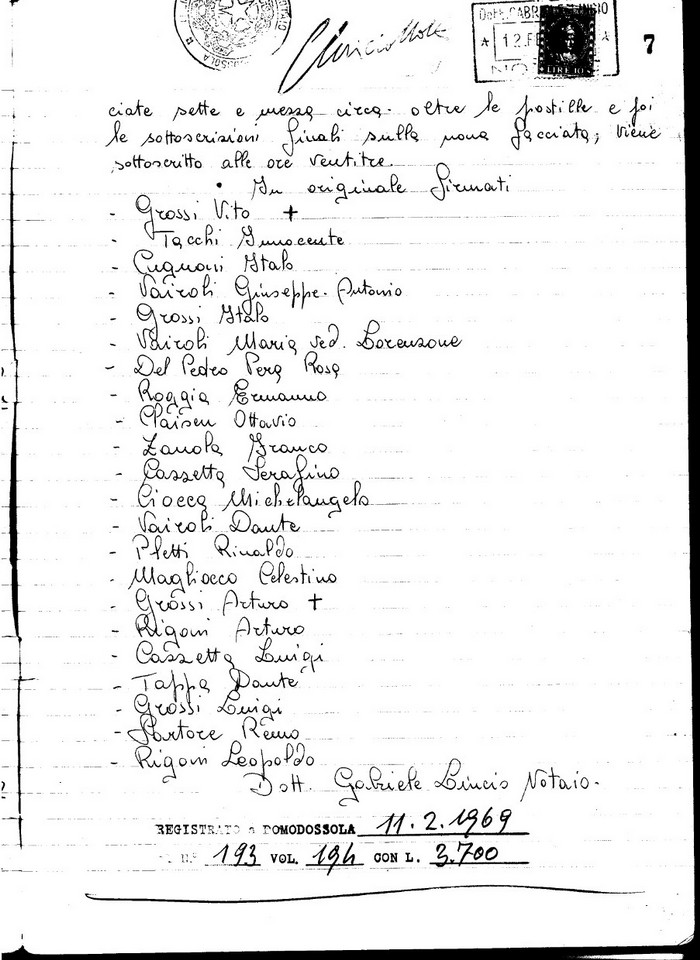 7
Dott. GABRIELE LINCIO
12 FE
NO
LIRE 10
ciate sette e mezza circa. oltre le postille e poi
le sottoscrizioni finali sulla nona facciata; viene
sottoscritto alle ore ventitre.
In originale firmati
- Grossi Vito +
- Tacchi Innocente
- Cugnoni Italo
- Vairoli Giuseppe Antonio
- Grossi Italo
- Vairoli Maria ved. Lorenzone
- Del Pedro Pera Rosa
- Roggia Ermanno
- Claisen Ottavio
- Zanola Franco
- Cassetta Serafino
- Ciocca Michelangelo
- Vairoli Dante
- Pletti Rinaldo
- Magliocco Celestino
- Grossi Arturo +
- Rigoni Arturo
- Cazzetta Luigi
- Tappa Dante
- Grossi Luigi
- Sartore Remo
- Rigoni Leopoldo
Dott. Gabriele Lincio Notaio.
REGISTRATO a DOMODOSSOLA 11.2.1969
N. 193 VOL. 194 CON L. 3.700